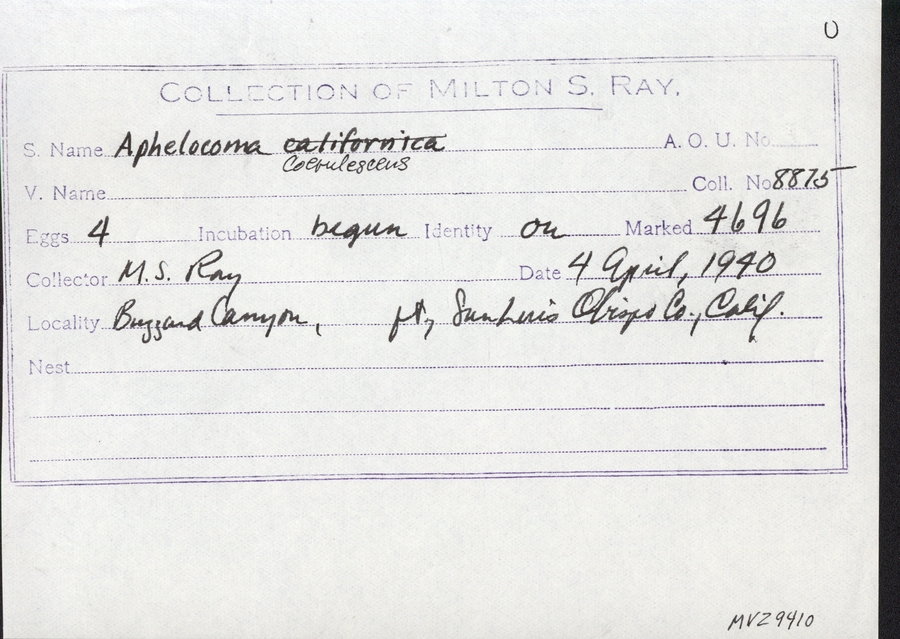 0
COLLECTION OF MILTON S. RAY.
S. Name Aphelocoma californica A. O. U. No.
Coerulescens
V. Name Coll. No 8875
Eggs 4 Incubation begun Identity on Marked 4696
Collector M.S. Ray Date 4 April, 1940
Locality Buzzard Canyon, San Luis Obispo Co., Calif.
Nest
MVZ9410